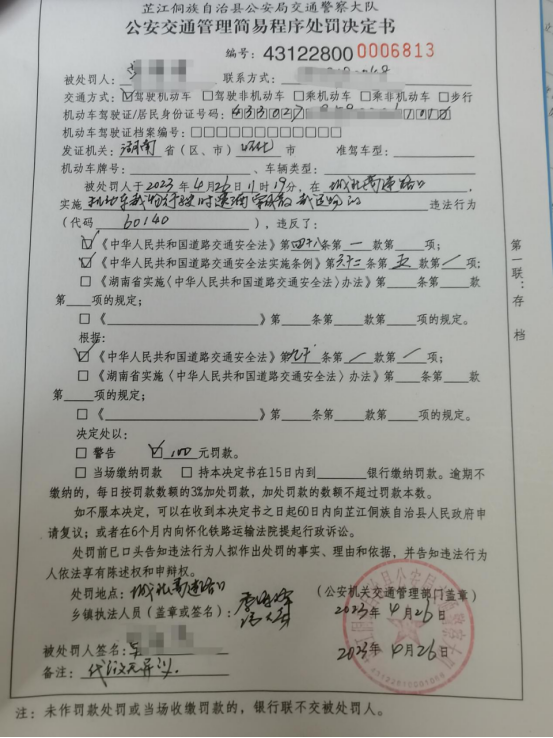 芷江侗族自治县公安局交通警察大队
公安交通管理简易程序处罚决定书
编号：43122800 0006813
被处罚人： 联系方式：
交通方式：☑驾驶机动车 □驾驶非机动车 □乘机动车 □乘非机动车 □步行
机动车驾驶证/居民身份证号码：
机动车驾驶证档案编号：□□□□□□□□□□□□
发证机关：湖南省（区、市）怀化市 准驾车型：
机动车牌号： 、车辆类型：
被处罚人于2023年4月26日11时19分，在
实施机动车载物行驶时遗洒、飘散载运物的 违法行为
（代码 60140 ），违反了：
☑《中华人民共和国道路交通安全法》第四十八条第一款第 项；
☑《中华人民共和国道路交通安全法实施条例》第六十二条第五款第/项；
□《湖南省实施〈中华人民共和国道路交通安全法〉办法》第 条第 款
第 项的规定；
□《 》第 条第 款第 项的规定。
根据：
☑《中华人民共和国道路交通安全法》第九十条第/款第/项；
□《湖南省实施〈中华人民共和国道路交通安全法〉办法》第 条第 款
第 项的规定；
□《 》第 条第 款第 项的规定。
决定处以：
□ 警告 ☑ 100 元罚款。
□ 当场缴纳罚款 □ 持本决定书在15日内到 银行缴纳罚款。逾期不
缴纳的，每日按罚款数额的3%加处罚款，加处罚款的数额不超过罚款本数。
如不服本决定，可以在收到本决定书之日起60日内向芷江侗族自治县人民政府申
请复议；或者在6个月内向怀化铁路运输法院提起行政诉讼。
处罚前已口头告知违法行为人拟作出处罚的事实、理由和依据，并告知违法行为
人依法享有陈述权和申辩权。
处罚地点： （公安机关交通管理部门盖章）
乡镇执法人员（盖章或签名）： 2023年4月26日
被处罚人签名： 2023年4月26日
备注：
第一联：存档
注：未作罚款处罚或当场收缴罚款的，银行联不交被处罚人。